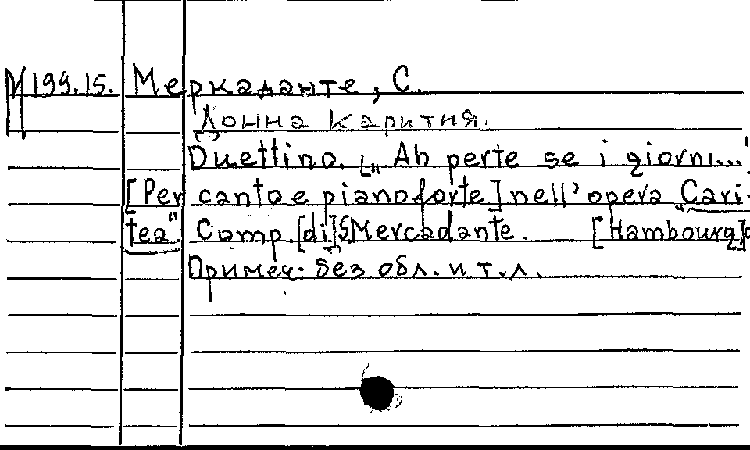 М 199.15. Меркаданте, С.
Донна Карития.
Duettino. [„Ah perte se i giorni..."
[Per canto e pianoforte] nell' opera „Cari-
tea" Comp. [di] S Mercadante. [Hambourg]
Примеч: без обл. и т. л.